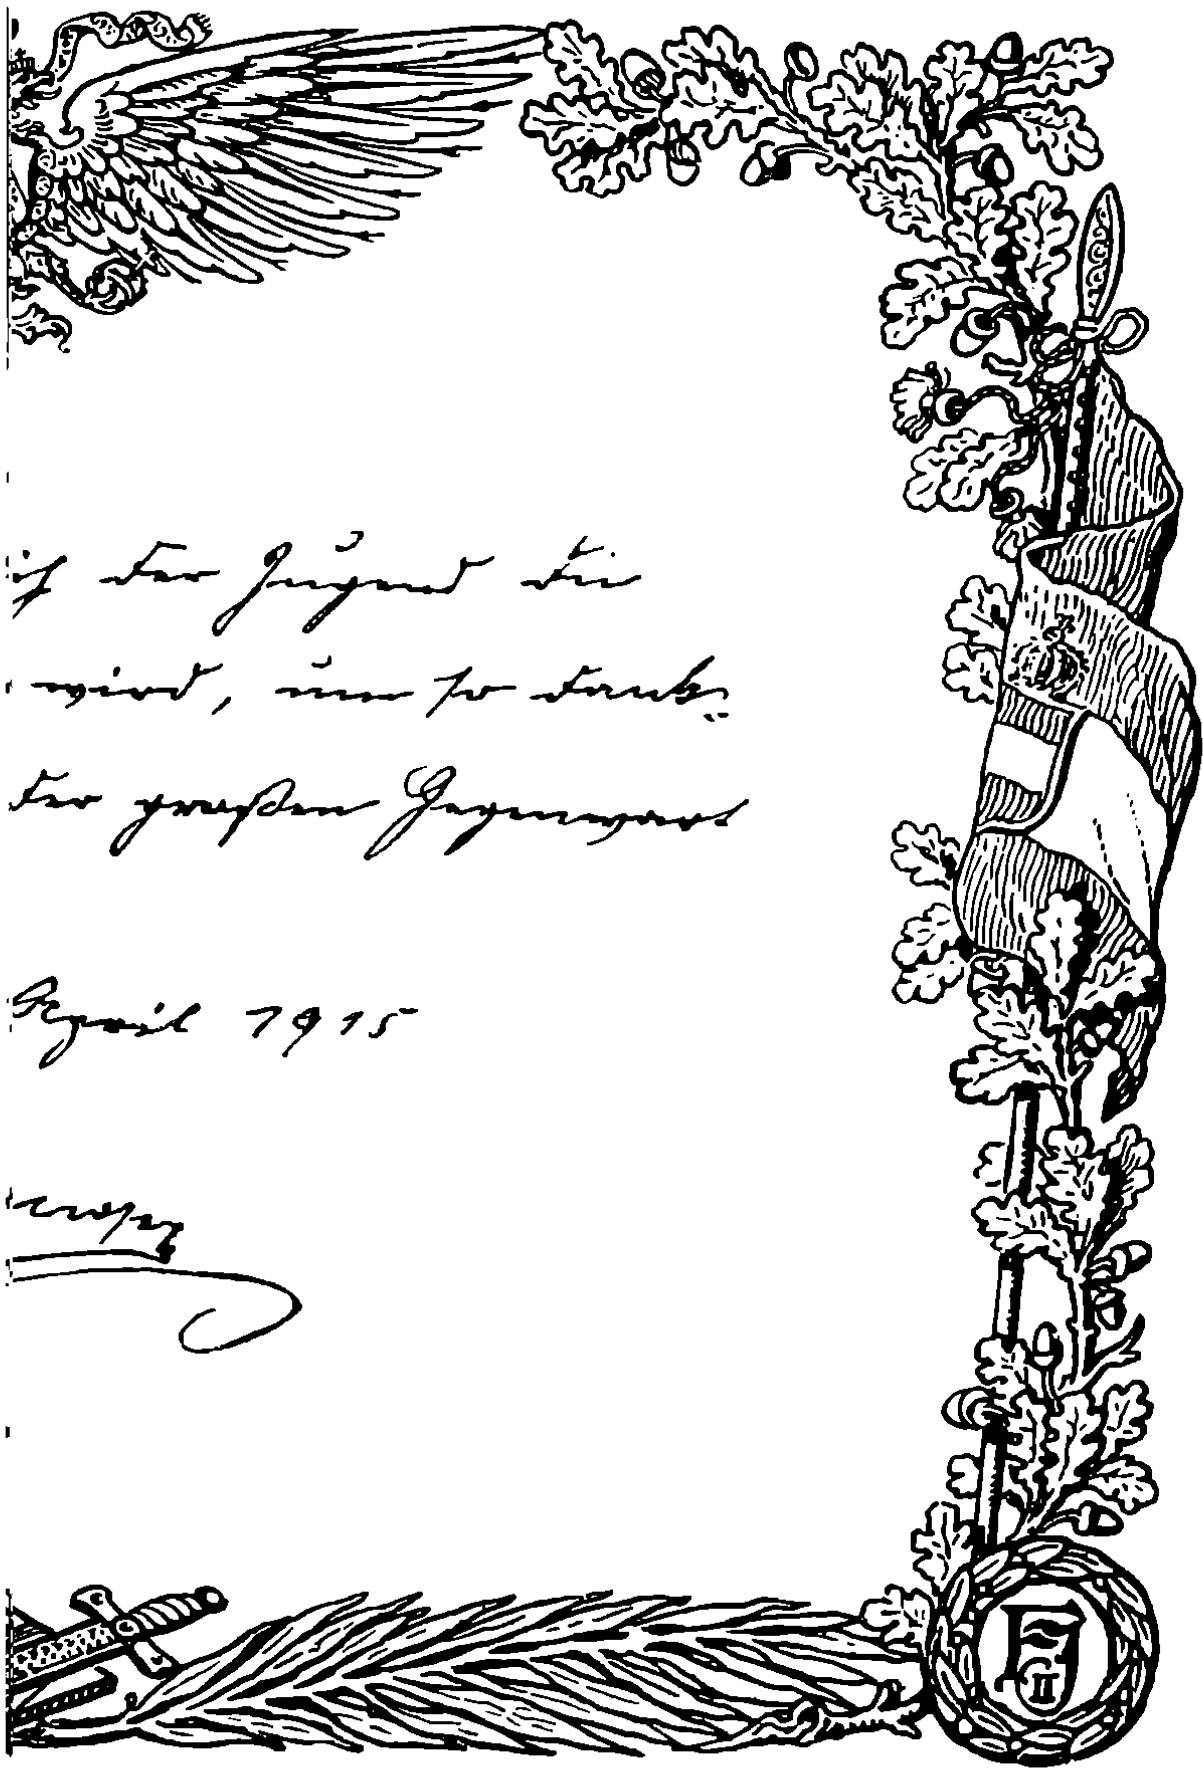 der Jugend die
wird, um so dank=
der großen Gegenwart
April 1915
F
II